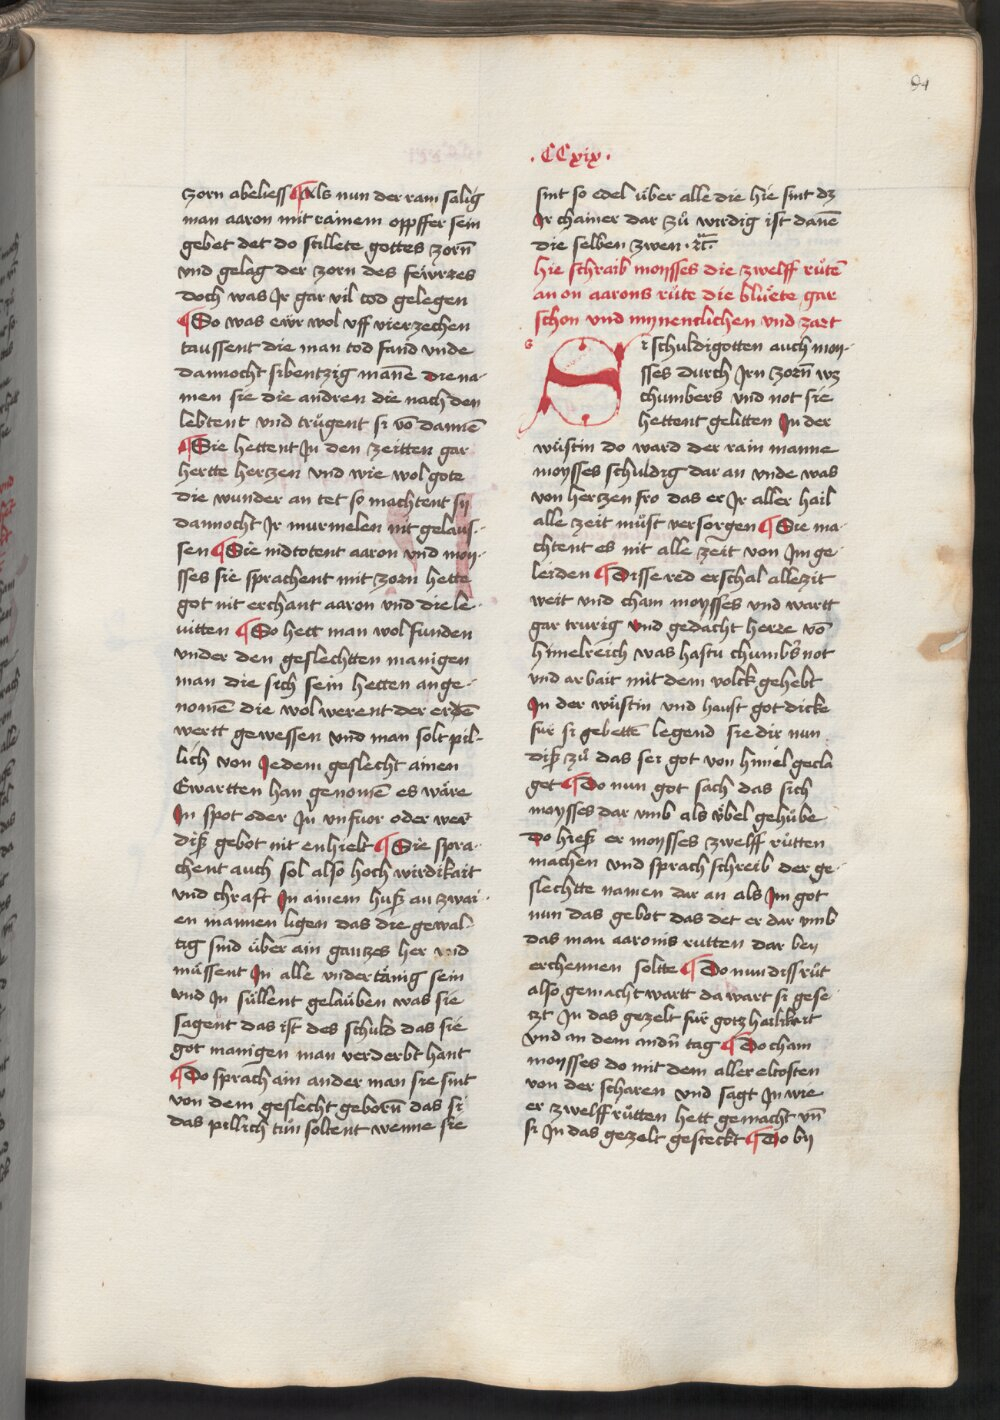 94
· CCxix ·
zorn abeliess ¶ Als nun der rain sälig
man aaron mit rainem oppffer sein
gebet det do stillete gottes zorn̄
vnd gelag der zorn des fewrzes
doch was Jr gar vil tod gelegen
¶ So was ewr wol vff vierzechen
taussent die man tod fand vnde
dannocht sibentzig man̄e die na-
men sie die andren die nach den
lebtent vnd trůgent si vō dannē
¶ Sie hettent Jn den zeitten gar
hertte hertzen vnd wie wol gote
die wunder an tet so machtent sy
dannocht Jr murmelen nit gelaus-
sen ¶ Sie nidtotent aaron vnd moy-
sses sie sprachent mit zorn hette
got nit erchant aaron vnd die le-
uitten ¶ So hett man wol funden
vnder den geslechtten manigen
man die sich sein hetten ange-
nomē die wol werent der erdē
wertt gewessen vnd man solt pil-
lich von Jedem geslecht ainen
Ewartten han genomē es wäre
Jn spot oder Jn vnfuor oder wer
diß gebot nit enhielt ¶ Sie spra-
chent auch sol also hoch wirdikait
vnd chraft Jn ainem huß an zwai-
en mannen ligen das die gewal-
tig sind über ain gantzes her vnd
müssent Jn alle vndertänig sein
vnd Jn süllent gelauben was sie
sagent das ist des schuld das sie
got manigen man verderbt hant
¶ Do sprach ain ander man sie sint
von dem geslecht geborn̄ das si
das pillich tůn soltent wenne sie
sint so edel über alle die hie sint dz
Jr chainer dar zů wirdig ist danē
die selben zwen · ꝛc̄ ·
hie schraib moysses die zwelff růtē
an on aarons růte die blůete gar
schon vnd mynenclichen vnd zart
s
Si schuldigotten auch moy-
sses durch Jrn zorn̄ wz
chumbers vnd not sie
hettent gelitten Jn der
wůstin do ward der rain manne
moysses schuldig dar an vnde was
von hertzen fro das er Jr aller hail
alle zeit můst versorgen ¶ Sie ma-
chtent es nit alle zeit von Jm ge-
leiden ¶ Disse red erschal allezit
weit vnd cham moysses vnd wartt
gar trurig vnd gedacht herre vō
himelreich was hastu chumbs not
vnd arbait mit dem volck gehebt
Jn der wůstin vnd haust got dicke
für si gebettē legend sie dir nun
diß zů das sei got von himel gecla
get ¶ Do nun got sach das sich
moysses dar vmb als v̈bel gehůbe
Do hieß er moysses zwelff růtten
machen vnd sprach schreib der ge-
slechtte namen dar an als Jm got
nun das gebot das det er dar vmb
das man aaronis rutten dar bey
erchennen soltte ¶ Do nun diss růt
also gemacht wartt da wart si gese
tzt Jn das gezelt für gotz hailikait
vnd an dem andn̄ tag ¶ Do cham
moysses do mit dem aller eltosten
von der scharen vnd sagt Jn wie
er zwelff růtten hett gemacht vn̄
si Jn das gezelt gesteckt ¶ Do by